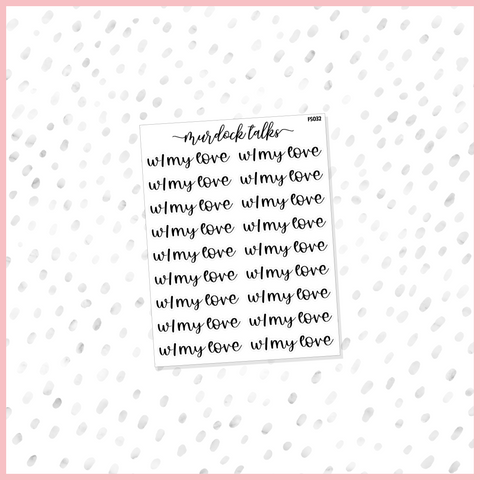 FS032
murdock talks
w/my love w/my love
w/my love w/my love
w/my love w/my love
w/my love w/my love
w/my love w/my love
w/my love w/my love
w/my love w/my love
w/my love w/my love
w/my love w/my love